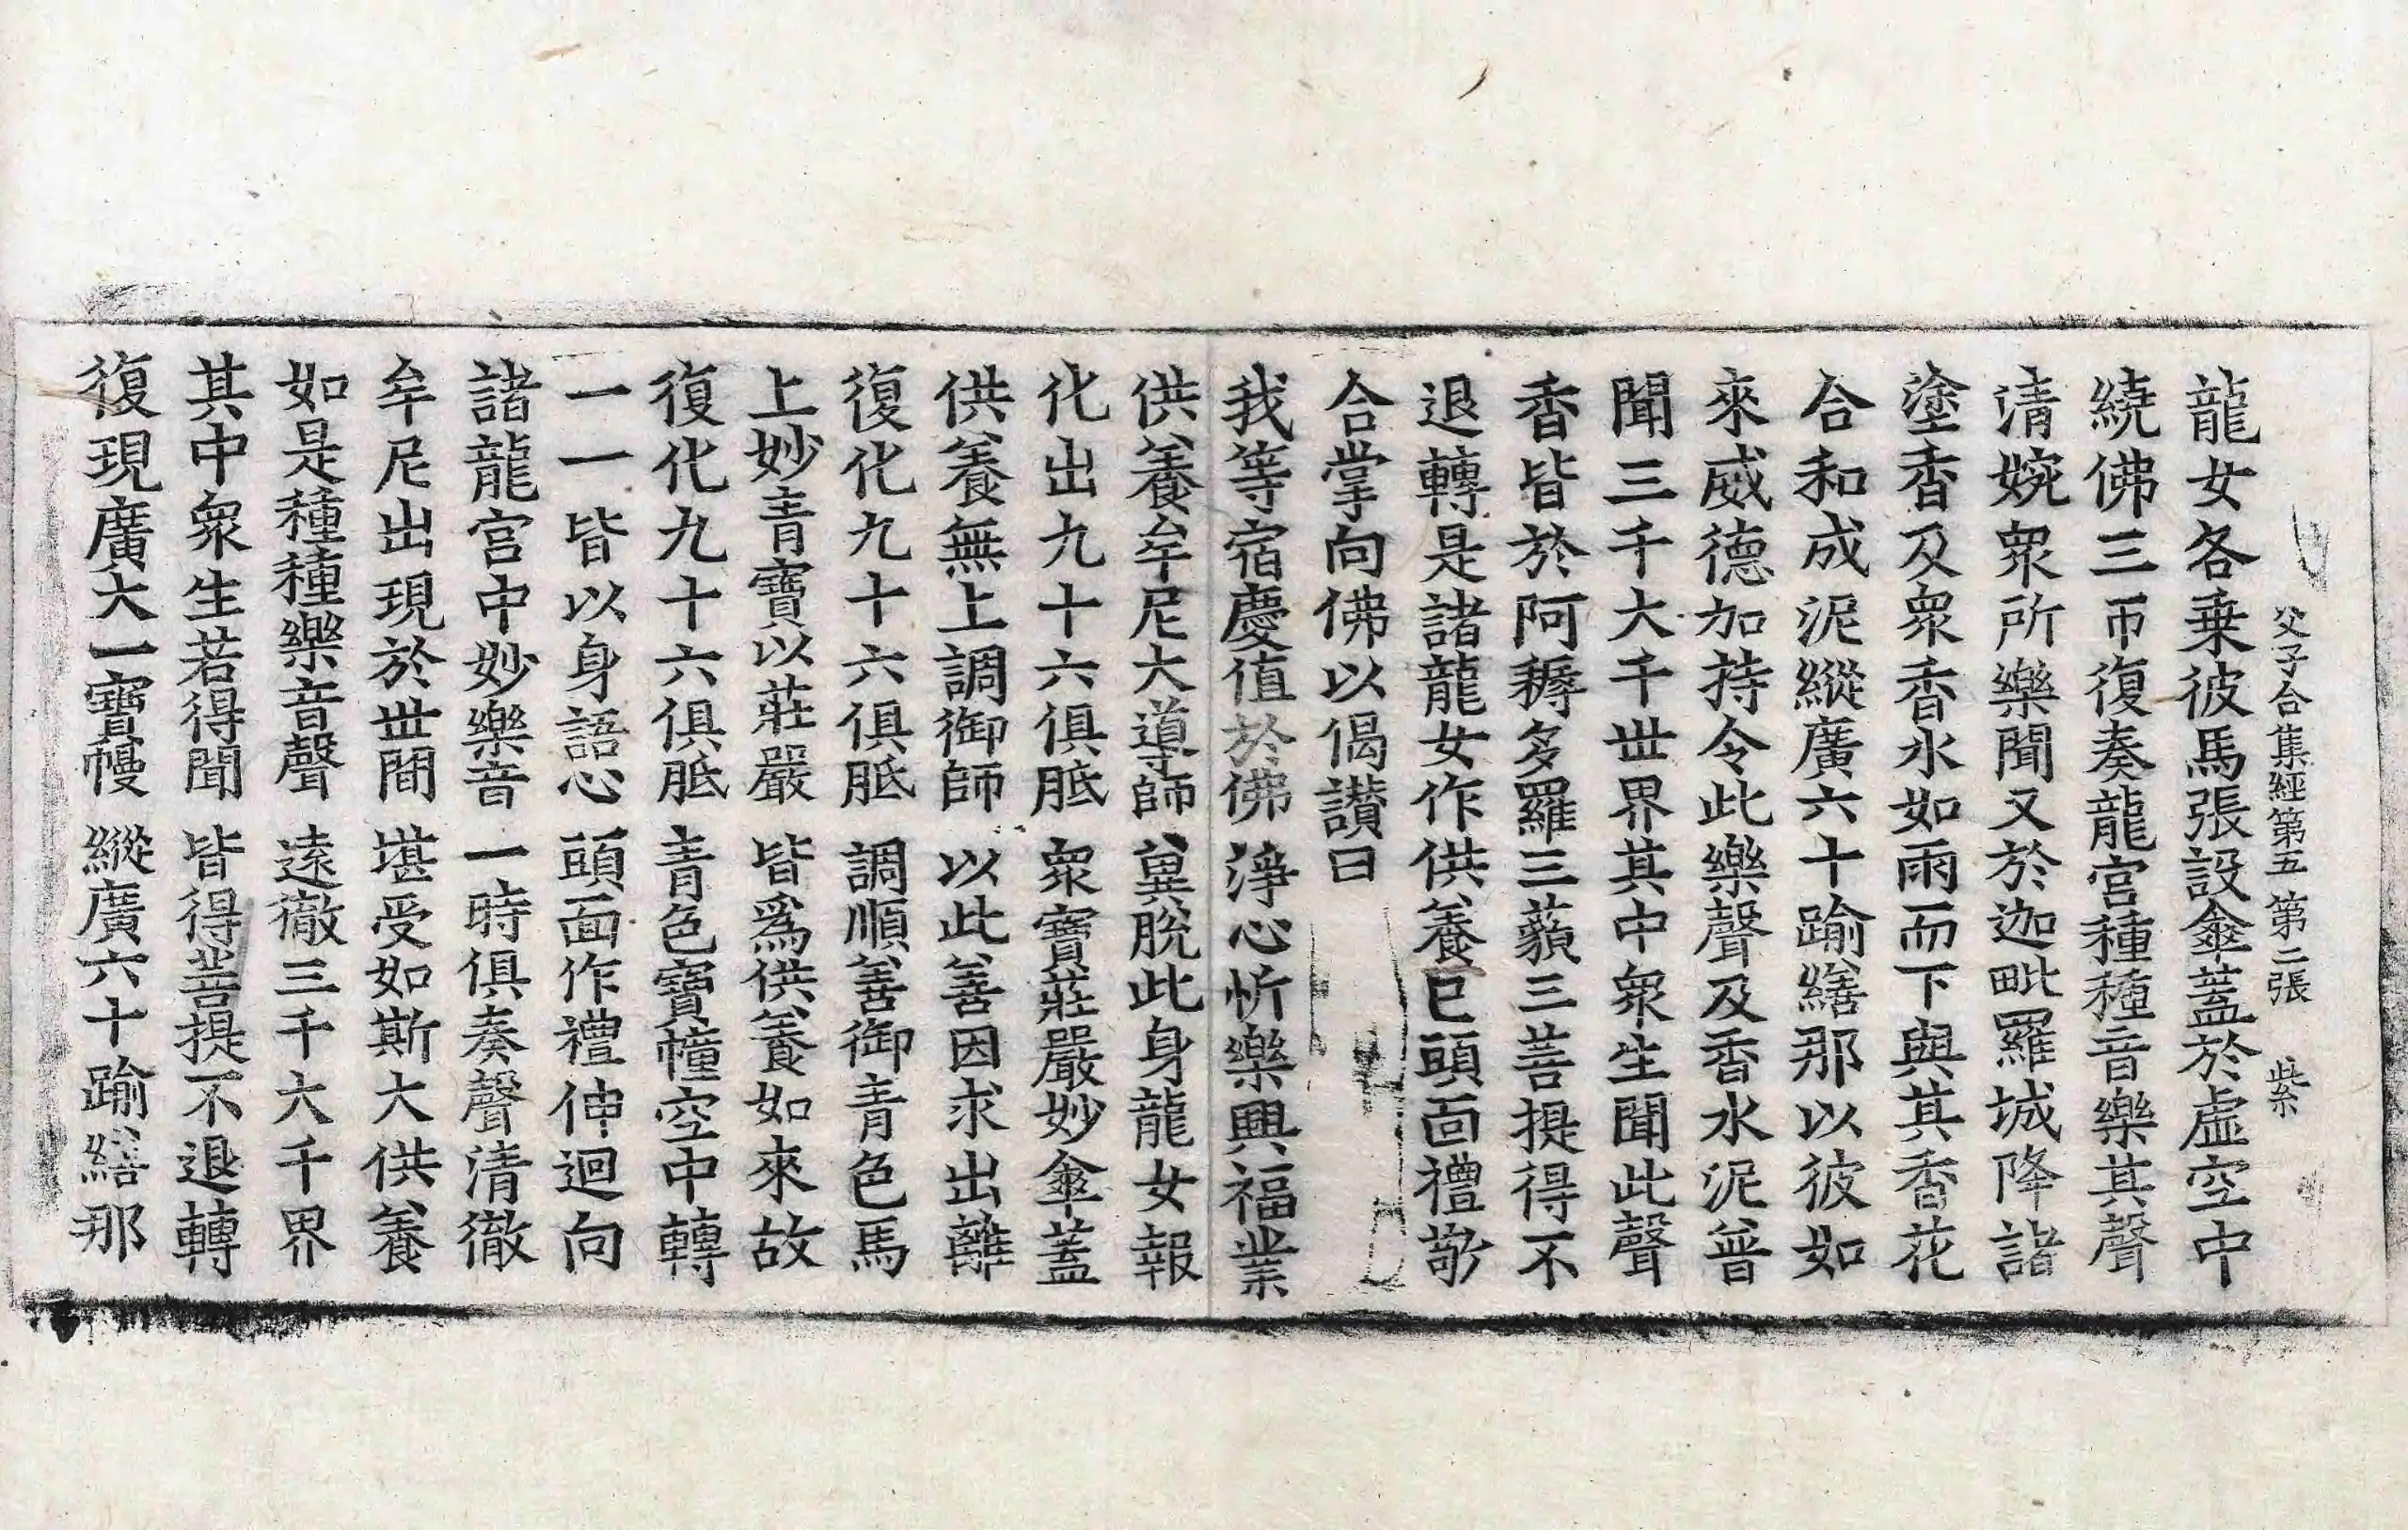 父子合集經第五 第二張 紫
龍女各乗彼馬張設傘蓋於虛空中
繞佛三帀復奏龍宮種種音樂其聲
清婉衆所樂聞又於迦毗羅城降諸
塗香及衆香水如雨而下與其香花
合和成泥縱廣六十踰繕那以彼如
來威德加持令此樂聲及香水泥普
聞三千大千世界其中衆生聞此聲
香皆於阿耨多羅三藐三菩提得不
退轉是諸龍女作供養已頭面禮敬
合掌向佛以偈讃曰
我等宿慶值於佛 淨心忻樂興福業
供養牟尼大導師 兾脫此身龍女報
化出九十六俱胝 衆寶莊嚴妙傘蓋
供養無上調御師 以此善因求出離
復化九十六俱胝 調順善御青色馬
上妙青寶以莊嚴 皆爲供養如來故
復化九十六俱胝 青色寶幢空中轉
一一皆以身語心 頭面作禮伸迴向
諸龍宮中妙樂音 一時俱奏聲清徹
牟尼出現於世間 堪受如斯大供養
如是種種樂音聲 遠徹三千大千界
其中衆生若得聞 皆得菩提不退轉
復現廣大一寶幔 縱廣六十踰繕那